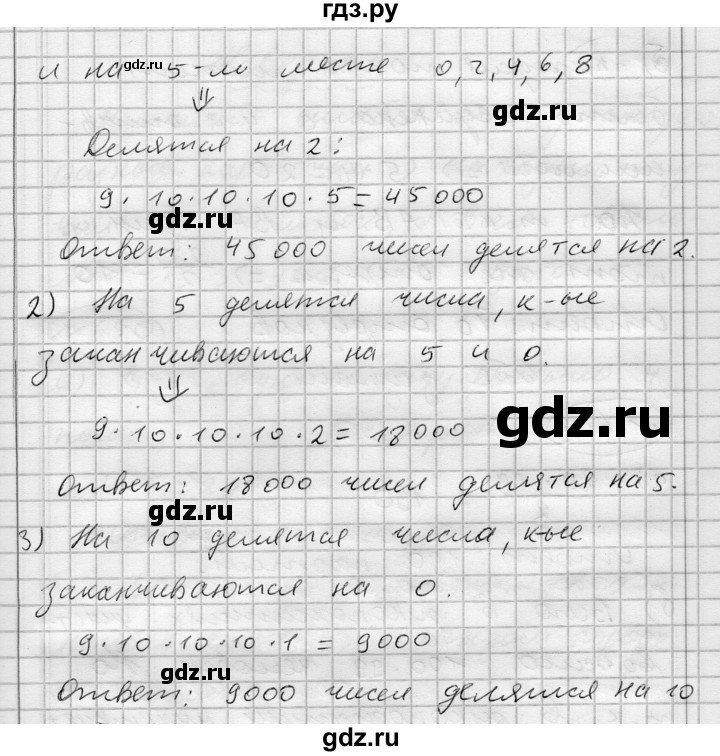 гдз.ру
и на 5-м месте 0, 2, 4, 6, 8
gdz.ru
⇓
gdz.ru
Делятся на 2:
9 · 10 · 10 · 10 · 5 = 45 000
gdz.ru
Ответ: 45 000 чисел делятся на 2.
2) На 5 делятся числа, к-ые
заканчиваются на 5 и 0.
⇓
gdz.ru
9 · 10 · 10 · 10 · 2 = 18000
Ответ: 18 000 чисел делятся на 5.
gdz.ru
3) На 10 делятся числа, к-ые
заканчиваются на 0.
9 · 10 · 10 · 10 · 1 = 9000
gdz.ru
Ответ: 9000 чисел делятся на 10
gdz.ru